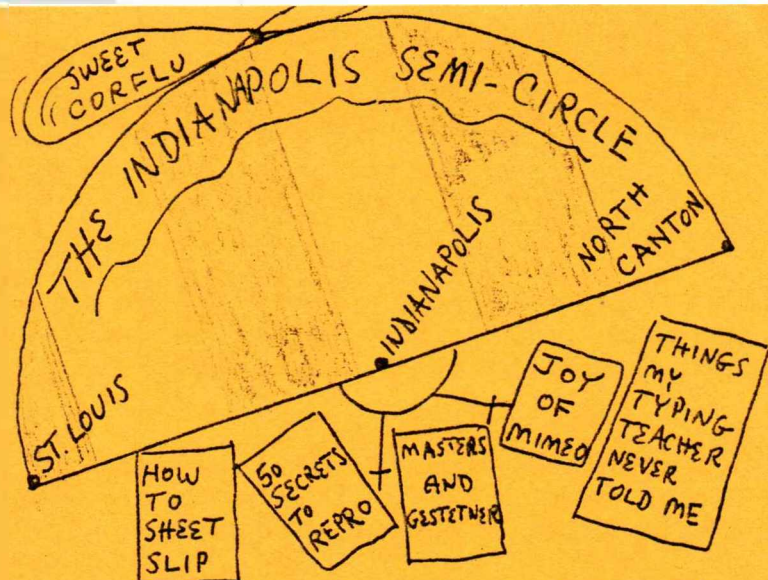 SWEET
CORFLU
THE INDIANAPOLIS SEMI-CIRCLE
NORTH
CANTON
INDIANAPOLIS
ST. LOUIS
HOW
TO
SHEET
SLIP
50
SECRETS
TO
REPRO
MASTERS
AND
GESTETNER
JOY
OF
MIMEO
THINGS
MY
TYPING
TEACHER
NEVER
TOLD ME